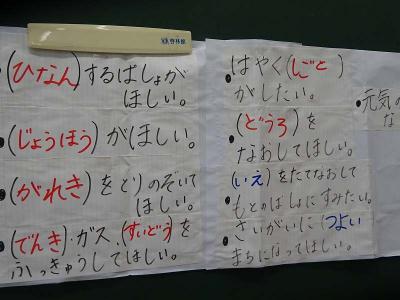 (ひなん)するばしょが
ほしい。
(じょうほう)がほしい。
(がれき)をとりのぞいて
ほしい。
(でんき)・ガス、(すいどう)を
ふっきゅうしてほしい。
はやく(しごと)
がしたい。
(どうろ)を
なおしてほしい。
(いえ)をたてなおして
もとのばしょにすみたい。
さいがいに(つよい)
まちになってほしい。
元気の
な